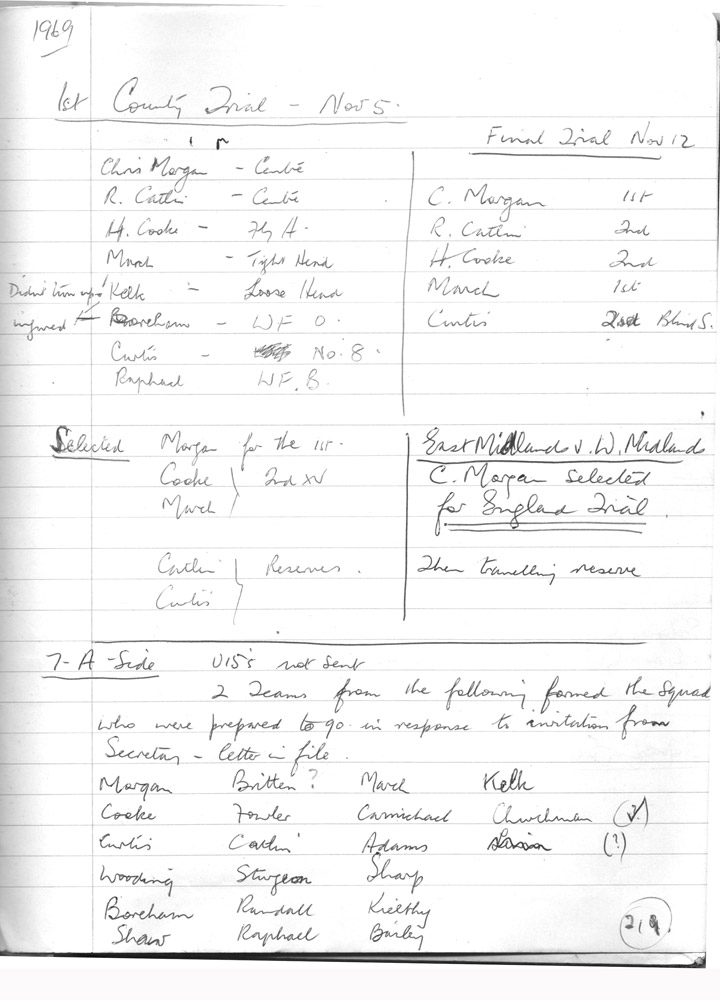 1969
1st County Trial - Nov 5.
Chris Morgan - Centre
R. Catlin - Centre
H. Cooke - Fly H.
March - Tight Head
Didn't turn up Kelk - Loose Head
injured Boreham - WF O.
Curtis - No. 8.
Raphael WF. B.
Final Trial Nov 12
C. Morgan 1st
R. Catlin 2nd
H. Cooke 2nd
March 1st
Curtis Blind S.
Selected Morgan for the 1st.
Cooke } 2nd XV
March
Catlin } Reserves.
Curtis
East Midlands v. W. Midlands
C. Morgan selected
for England Trial.
Then travelling reserve
7-A-Side U15's not sent
2 Teams from the following formed the squad
who were prepared to go in response to invitation from
Secretary - letter in file.
Morgan Britten ? March Kelk
Cooke Fowler Carmichael Churchman (✓)
Curtis Catlin Adams (?)
Wooding Sturgeon Sharp
Boreham Randall Kielthy
Shaw Raphael Bailey
219